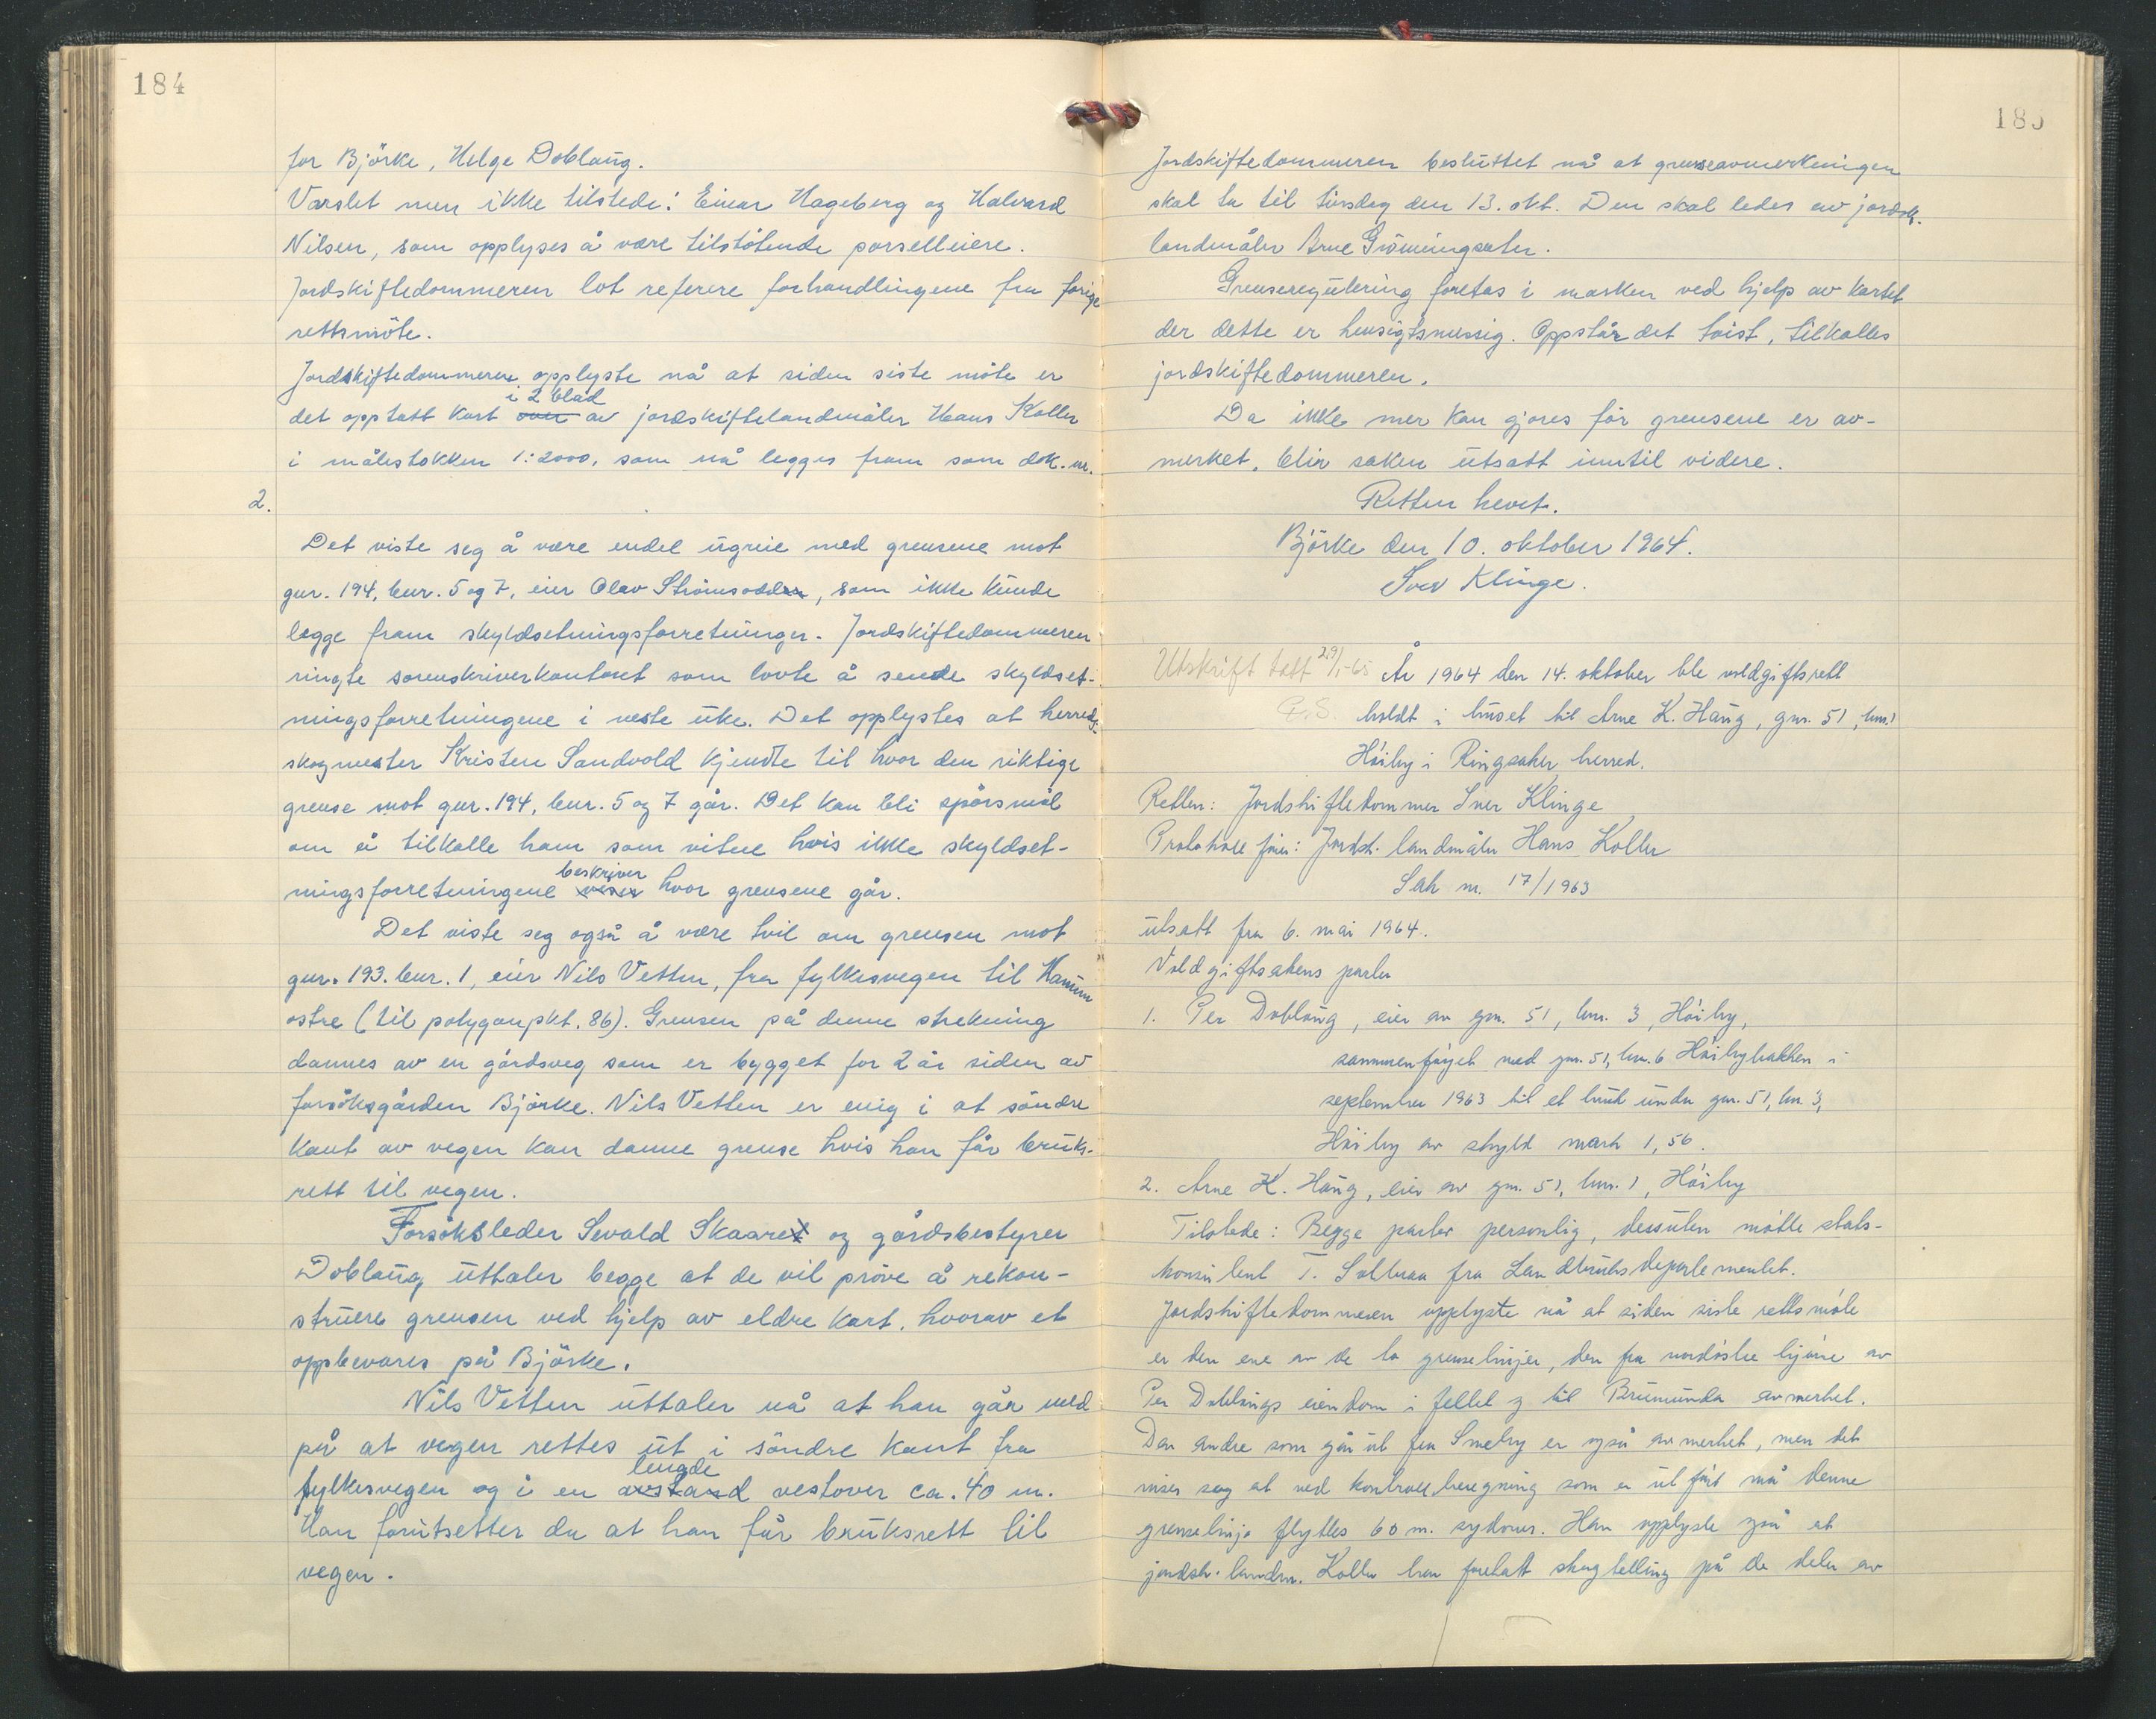 184
for Björke, Helge Doblaug.
Varslet men ikke tilstede: Einar Hageberg og Halvard
Nilsen, som opplyses å være tilstötende parselleiere.
Jordskiftedommeren lot referere forhandlingene fra forige
rettsmöte.
Jordskiftedommeren opplyste nå at siden siste möte er
i 2 blad
det opptatt kart over av jordskiftelandmåler Hans Koller
i målestokken 1:2000, som nå legges fram som dok. nr.
2.
Det viste seg å være endel ugreie med grensene mot
gnr. 194, bnr. 5 og 7, eier Olav Strömsodden, som ikke kunde
legge fram skyldsetningsforretninger. Jordskiftedommeren
ringte sorenskriverkontoret som lovte å sende skyldset-
ningsforretningene i neste uke. Det opplystes at herreds-
skogmester Kristen Sandvold kjendte til hvor den riktige
grense mot gnr. 194, bnr. 5 og 7 går. Det kan bli spörsmål
om å tilkalle ham som vitne hvis ikke skyldset-
beskriver
ningsforretningene viser hvor grensene går.
Det viste seg også å være tvil om grensen mot
gnr. 193. bnr. 1, eier Nils Vetten, fra fylkesvegen til Hamm
östre (til polygonpkt. 86). Grensen på denne strekning
dannes av en gårdsveg som er bygget for 2 år siden av
forsöksgården Björke. Nils Vetten er enig i at söndre
kant av vegen kan danne grense hvis han får bruks-
rett til vegen.
Forsöksleder Sevald Skaare og gårdsbestyrer
Doblaug uttaler begge at de vil pröve å rekon-
struere grensen ved hjelp av eldre kart, hvorav et
oppbevares på Björke.
Nils Vetten uttaler nå at han går med
på at vegen rettes ut i söndre kant fra
lengde
fylkesvegen og i en avstand vestover ca. 40 m.
Han forutsetter da at han får bruksrett til
vegen.
185
Jordskiftedommeren besluttet nå at grenseavmerkningen
skal ta til tirsdag den 13. okt. Den skal ledes av jordsk.
landmåler Arne Grönningsæter.
Grenseregulering foretas i marken ved hjelp av kartet
der dette er hensigtsmessig. Oppstår det tvist, tilkalles
jordskiftedommeren.
Da ikke mer kan gjöres för grensene er av-
merket, blir saken utsatt inntil videre.
Retten hevet.
Björke den 10. oktober 1964.
Sver Klinge.
Utskrift tatt 29/1-65 År 1964 den 14. oktober ble voldgiftsrett
G.S. holdt i huset til Arne K. Haug, gnr. 51, bnr. 1
Höiby i Ringsaker herred.
Retten: Jordskiftedommer Sver Klinge
Protokoll förer: Jordsk. landmåler Hans Koller
Sak nr. 17/1963
utsatt fra 6. mai 1964.
Voldgiftsakens parter
1. Per Doblaug, eier av gnr. 51, bnr. 3, Höiby,
sammenföyet med gnr. 51, bnr. 6 Höibybakken i
september 1963 til et bruk under gnr. 51, bnr. 3,
Höiby av skyld mark 1,56.
2. Arne K. Haug, eier av gnr. 51, bnr. 1, Höiby
Tilstede: Begge parter personlig, dessuten mötte stats-
konsulent T. fra Landbruksdepartementet.
Jordskiftedommeren opplyste nå at siden siste rettsmöte
er den ene av de to grenselinjer, den fra nordöstre hjörne av
Per Doblaugs eiendom i fellet og til Brumunda avmerket.
Den andre som går ut fra Smeby er også avmerket, men det
viser seg at ved kontrollberegning som er utfört må denne
grenselinje flyttes 60 m. sydover. Han opplyste også at
jordsk. landm. Koller har foretatt skogtelling på de deler av